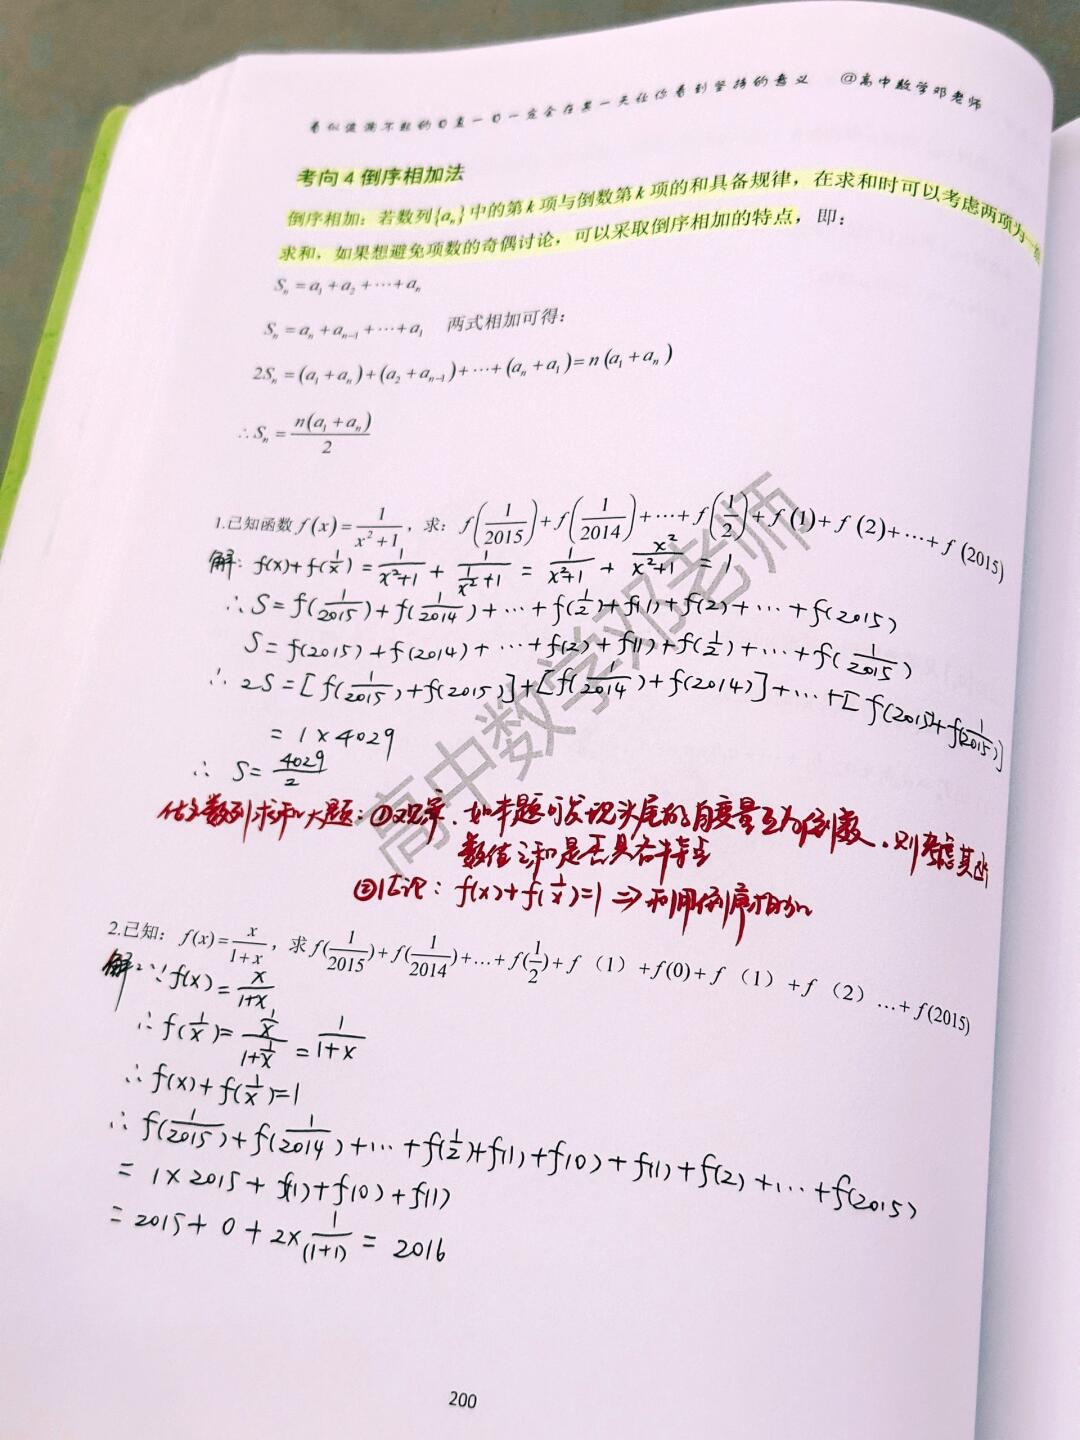 看似波澜不惊的日复一日一定会在某一天让你看到坚持的意义 @高中数学邓老师
考向 4 倒序相加法
倒序相加：若数列{aₙ}中的第 k 项与倒数第 k 项的和具备规律，在求和时可以考虑两项为一组
求和，如果想避免项数的奇偶讨论，可以采取倒序相加的特点，即：
Sₙ = a₁ + a₂ + ⋯ + aₙ
Sₙ = aₙ + aₙ₋₁ + ⋯ + a₁ 两式相加可得：
2Sₙ = (a₁ + aₙ) + (a₂ + aₙ₋₁) + ⋯ + (aₙ + a₁) = n(a₁ + aₙ)
∴ Sₙ = n(a₁ + aₙ)/2
1.已知函数 f(x) = 1/(x²+1)，求：f(1/2015) + f(1/2014) + ⋯ + f(1/2) + f (1) + f (2) + ⋯ + f (2015)
解: f(x)+f(1/x) = 1/(x²+1) + 1/(1/x²+1) = 1/(x²+1) + x²/(x²+1) = 1
∴ S = f(1/2015) + f(1/2014) + ⋯ + f(1/2) + f(1) + f(2) + ⋯ + f(2015)
S = f(2015) + f(2014) + ⋯ + f(2) + f(1) + f(1/2) + ⋯ + f(1/2015)
∴ 2S = [f(1/2015) + f(2015)] + [f(1/2014) + f(2014)] + ⋯ + [f(2015) + f(1/2015)]
= 1 × 4029
∴ S = 4029/2
数列求和大题：①观察、如本题可发现头尾的自变量互为倒数，则考虑其
数值之和是否具有特点
②结论：f(x)+f(1/x)=1 ⇒ 利用倒序相加
2.已知：f(x) = x/(1+x)，求 f(1/2015) + f(1/2014) + … + f(1/2) + f（1）+ f(0) + f（1）+ f（2）… + f(2015)
解：∵ f(x) = x/(1+x)
∴ f(1/x) = (1/x)/(1+1/x) = 1/(1+x)
∴ f(x) + f(1/x) = 1
∴ f(1/2015) + f(1/2014) + ⋯ + f(1/2) + f(1) + f(0) + f(1) + f(2) + ⋯ + f(2015)
= 1×2015 + f(1) + f(0) + f(1)
= 2015 + 0 + 2× 1/(1+1) = 2016
高中数学邓老师
200